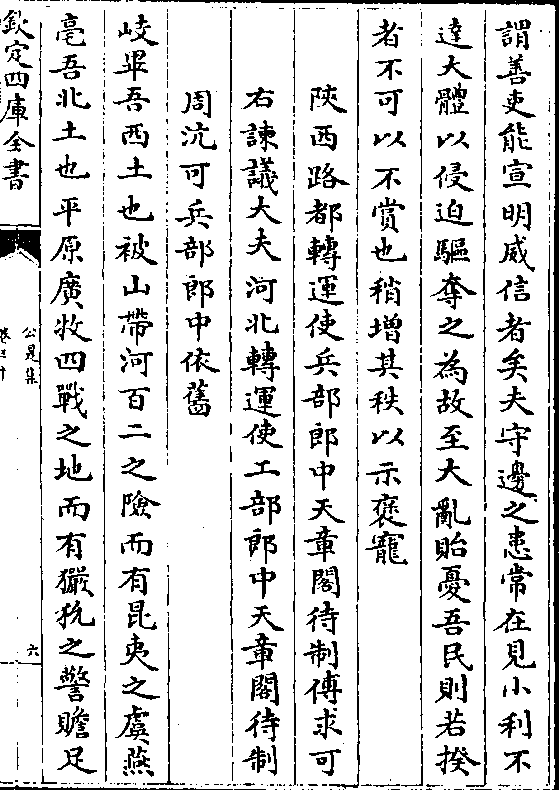 謂善吏能宣明威信者矣夫守邊之患常在見小利不
達大體以侵迫驅奪之為故至大亂貽憂吾民則若揆
者不可以不賞也稍增其秩以示褒寵
陜西路都轉運使兵部郎中天章閣待制傅求可
右諫議大夫河北轉運使工部郎中天章閣待制
周沆可兵部郎中依舊
岐畢吾西土也被山帶河百二之險而有昆夷之虞燕
亳吾北土也平原廣牧四戰之地而有玁狁之警贍足
欽定四庫全書
公是集
卷三十
六